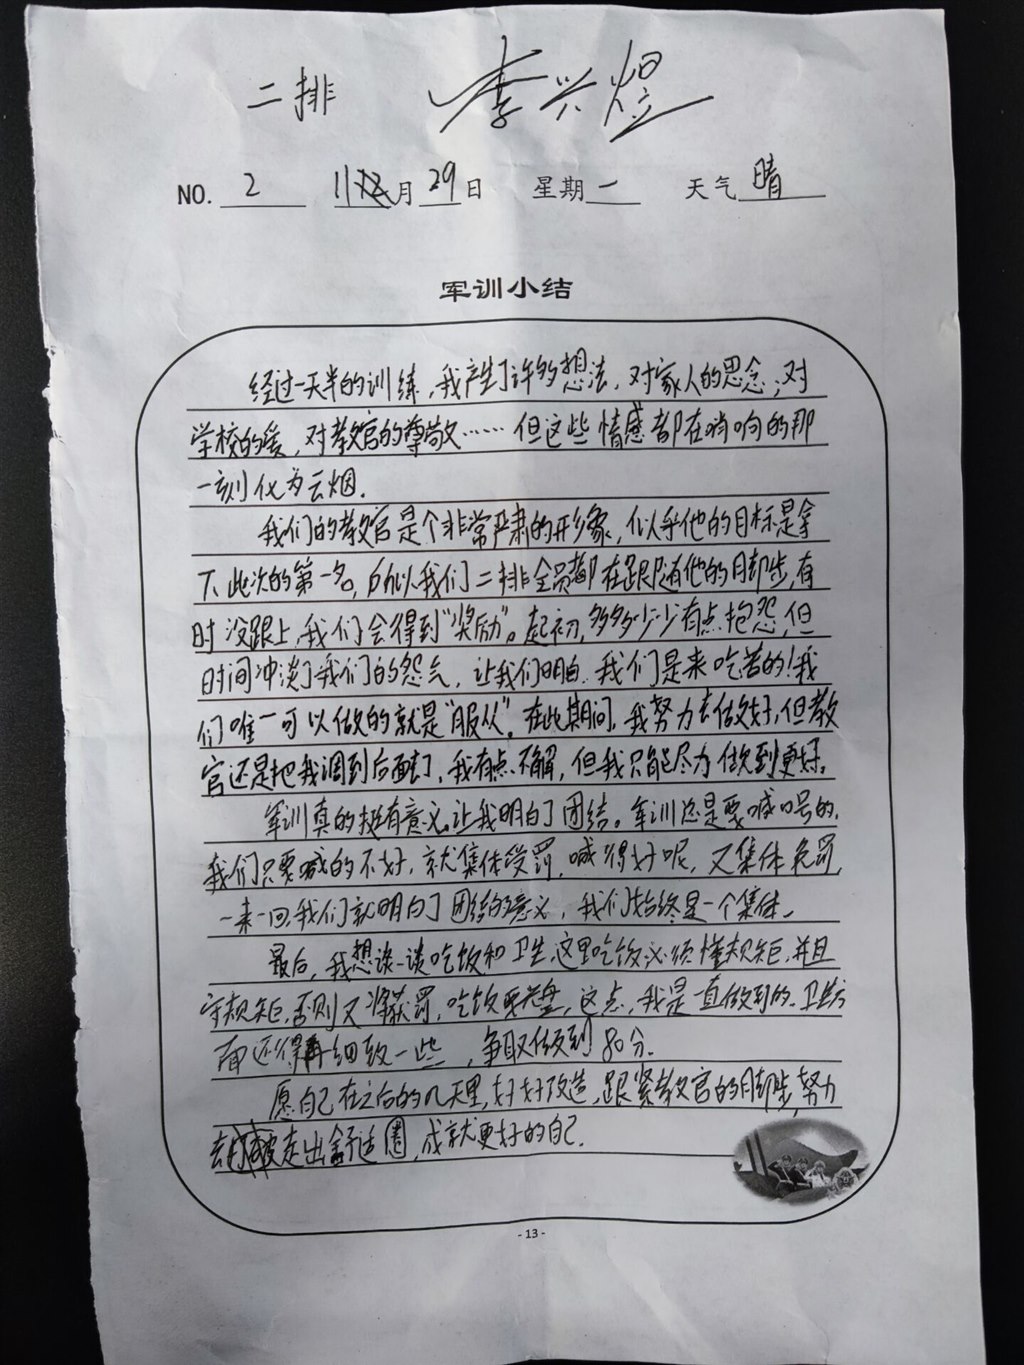 二排 李兴煜
NO. 2 11月29日 星期一 天气晴
军训小结
经过一天半的训练，我产生了许多想法，对家人的思念；对
学校的爱，对教官的尊敬……但这些情感都在哨响的那
一刻化为云烟.
我们的教官是个非常严肃的形象，似乎他的目标是拿
下此次的第一名，所以我们二排全员都在跟随着他的脚步，有
时没跟上，我们会得到“奖励”。起初，多多少少有点抱怨，但
时间冲淡了我们的怨气，让我们明白.我们是来吃苦的！我
们唯一可以做的就是“服从”。在此期间，我努力去做好，但教
官还是把我调到后面去了，我有点不解，但我只能尽力做到更好。
军训真的挺有意义，让我明白了团结。军训总是要喊口号的，
我们只要喊的不好，就集体受罚，喊得好呢，又集体免罚，
一来一回，我们就明白了团结的意义，我们始终是一个集体。
最后，我想谈一谈吃饭和卫生，这里吃饭必须懂规矩，并且
守规矩，否则又将获罚，吃饭要光盘，这点，我是一直做到的.卫生方
面还得再细致一些，争取做到80分.
愿自己在之后的几天里，好好改造，跟紧教官的脚步，努力
去走出舒适圈，成就更好的自己.
- 13 -